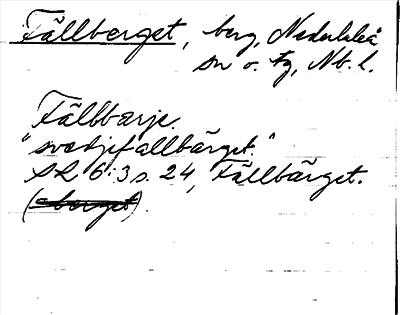 Fällberget, berg, Nederluleå
sn o. tg, Nb. l.
Fällbærje.
"svedjefallbärget."
SL 6:3 s. 24, Fällbärget.
(-berget).